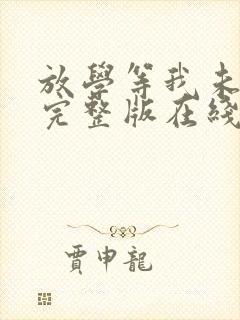 放學等我未
完整版在綫
賈申龍